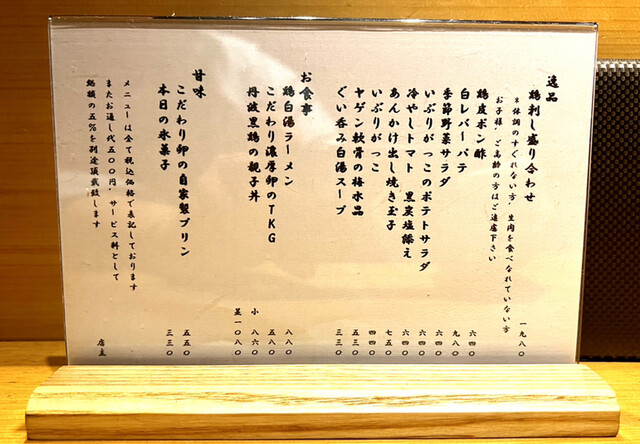 逸品
鶏刺し盛り合わせ 一九八〇
＊体調のすぐれない方、生肉を食べなれていない方
お子様、ご高齢の方はご遠慮下さい
鶏皮ポン酢 六四〇
白レバーパテ 九八〇
季節野菜サラダ 六四〇
いぶりがっこのポテトサラダ 六四〇
冷やしトマト 黒炭塩添え 六四〇
あんかけ出し焼き玉子 七五〇
いぶりがっこ 四四〇
ヤゲン軟骨の梅水晶 五三〇
ぐい呑み白湯スープ 三三〇
お食事
鶏白湯ラーメン 八八〇
こだわり濃厚卵のTKG 五八〇
丹波黒鶏の親子丼 小 八六〇
並 一〇八〇
甘味
こだわり卵の自家製プリン 五五〇
本日の氷菓子 三三〇
メニューは全て税込価格で表記しております
またお通し代五〇〇円、サービス料として
総額の五%を別途頂戴致します
店主